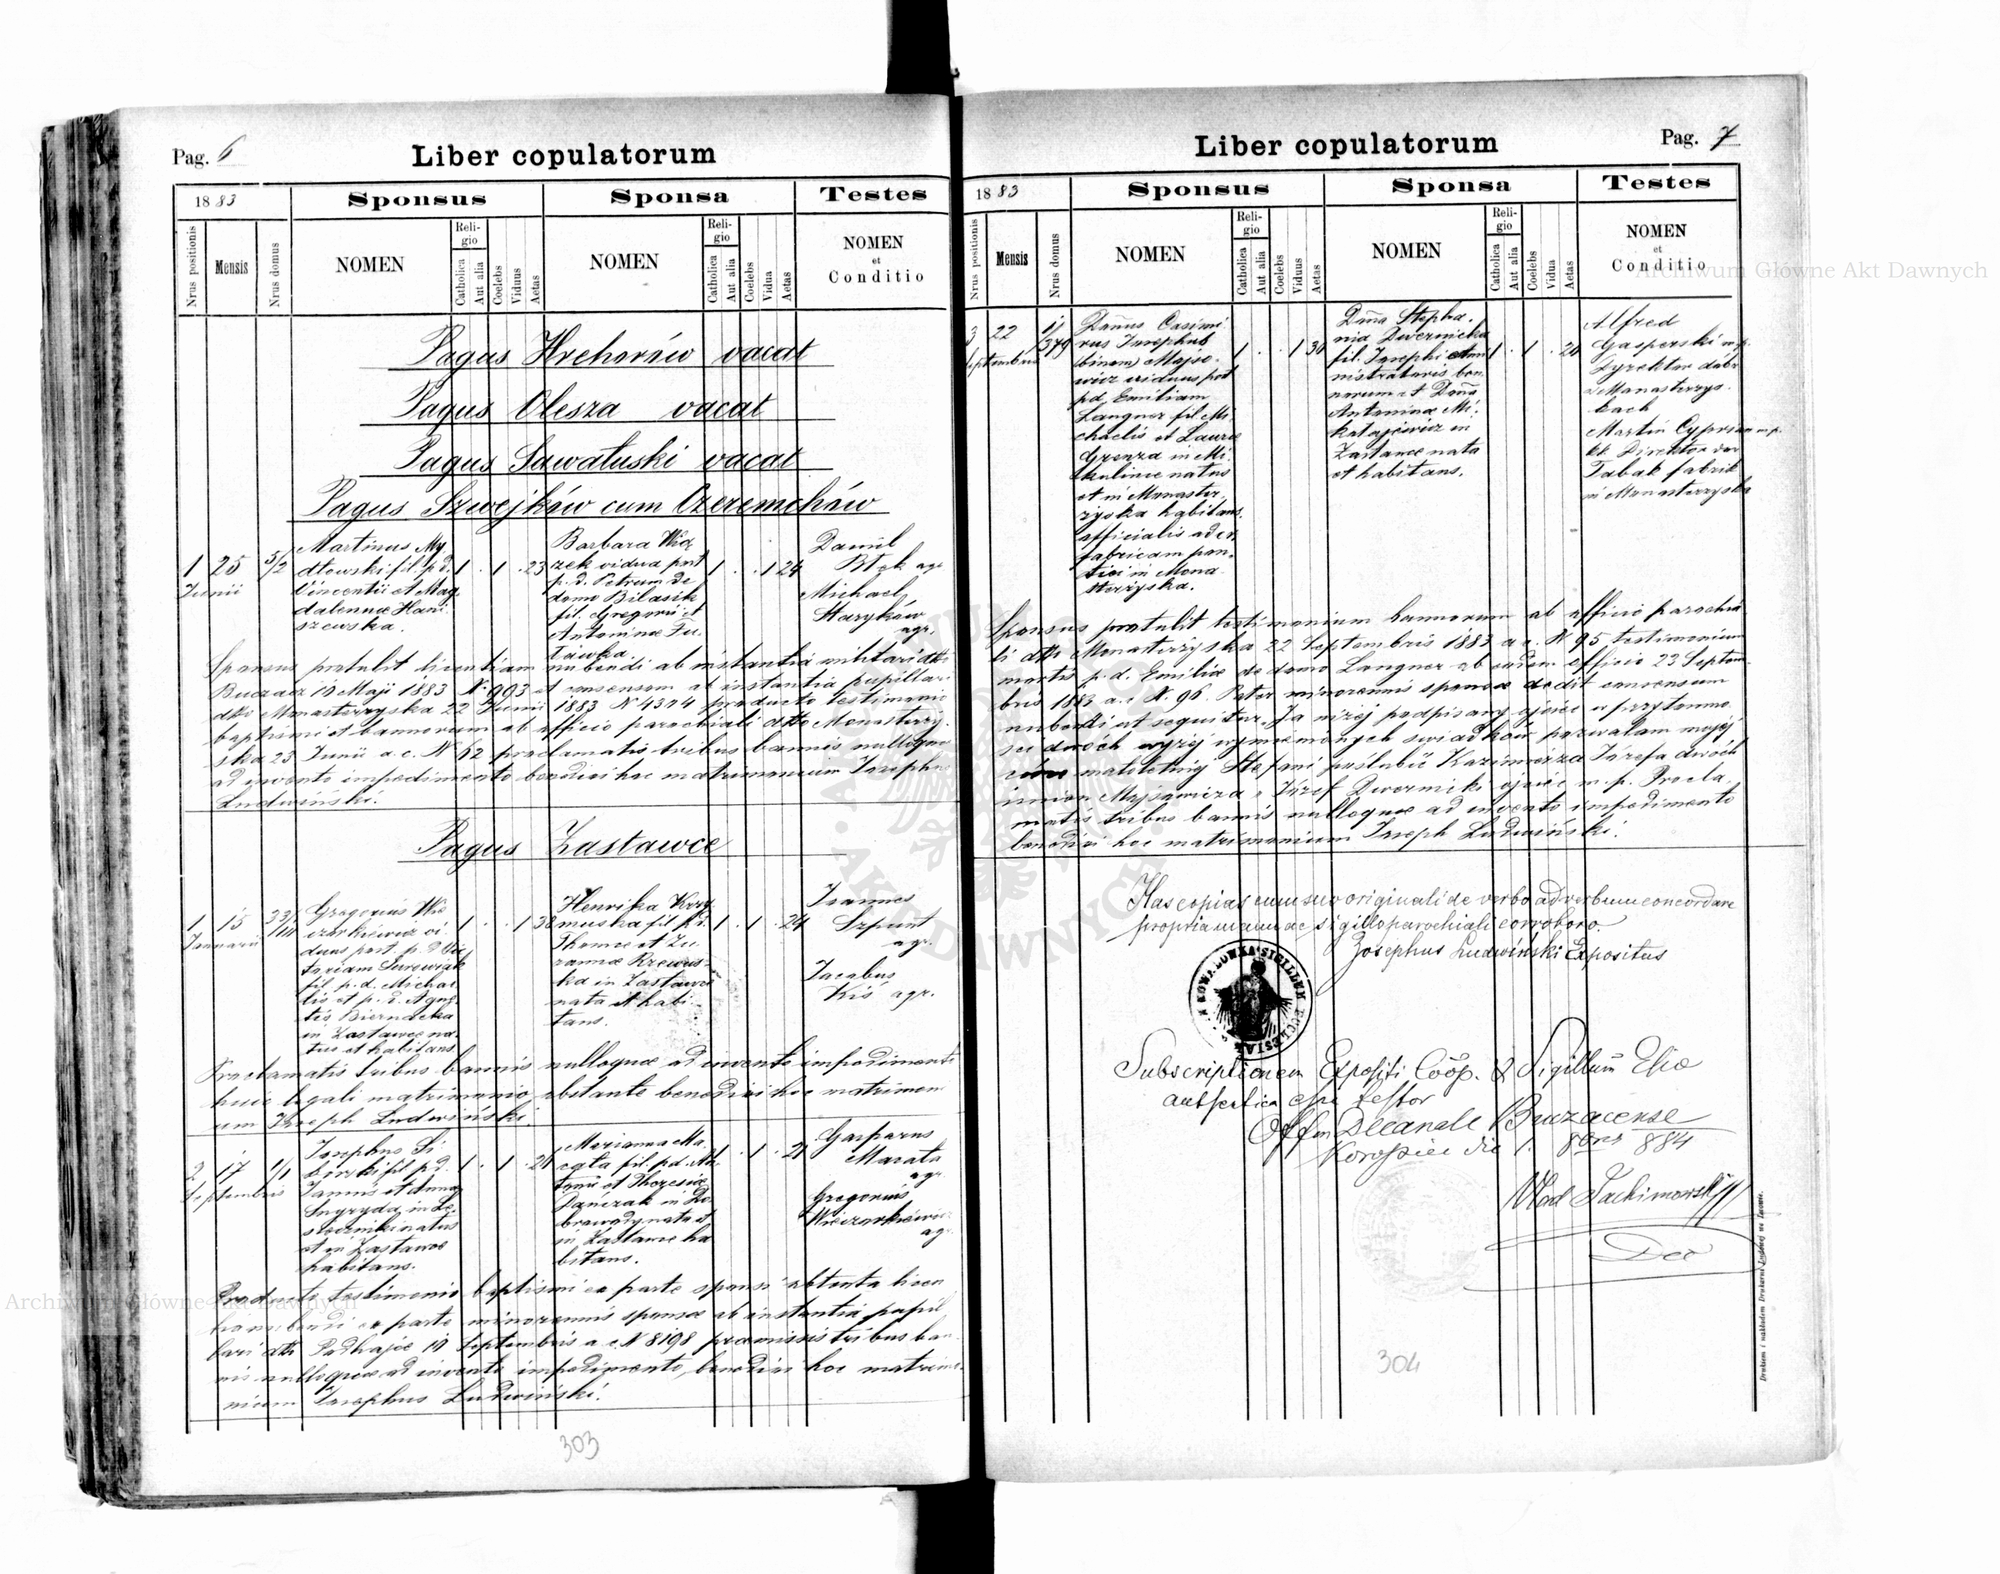 Pag. 6
Liber copulatorum
1883
Sponsus
Sponsa
Testes
Nrus positionis
Mensis
Nrus domus
NOMEN
Religio
Catholica
Aut alia
Coelebs
Viduus
Aetas
NOMEN
Religio
Catholica
Aut alia
Coelebs
Vidua
Aetas
NOMEN
et
Conditio
Pagus Hrehorów vacat
Pagus Olesza vacat
Pagus Sawałuski vacat
Pagus Szwejków cum Czeremchów
1 25 Junii
5/2
Martinus My
dłowski fil. p. d.
Vincentii et Mag
dalennae Hani
szewska.
1 . 1 . 23
Barbara Wią
zek vidua post
p. d. Petrum de
domo Bilasik
fil. Gregorii et
Antoninae Tu
tawka.
1 . . 1 24
Daniil
Błek agr.
Michael
Staryków
agr.
Sponsus protulit licentiam nubendi ab instantia militari dtto
Buczacz 10 Maji 1883 N. 993 et consensem ab instantia pupillari
dtto Monasterzyska 22 Junii 1883 N 4304 producto testimonio
baptismi et bannorum ab officio parochiali dtto Monasterzy
ska 23 Junii a. c. N 62 proclamatis tribus bannis nulloque
ad invento impedimento benedixi hoc matrimonium Josephus
Ludwiński.
Pagus Zastawce
1 15 Januarii
33/111
Gregorius Wie
czorkiewicz vi
duus post p. d. Vic
toriam Surowiak
fil. p. d. Michae
lis et p. d. Agne
tis Biernacka
in Zastawce na
tus et habitans
1 . . 1 38
Henrika Krzy
muska fil. p. d.
Thomae et Zu
zannae Rzewus
ka in Zastawce
nata et habi
tans.
1 . 1 . 24
Joannes
Szpunt
agr.
Jacobus
Kiś agr.
Proclamatis tribus bannis nulloque ad invento impedimento
huic legali matrimonio obstante benedixi hoc matrimoni
um Joseph Ludwiński.
2 17 Septembris
1/1
Josephus Si
korski fil. p. d.
Joannis et Annae
Smyryda in Le
szczniki natus
et in Zastawce
habitans.
1 . 1 . 26
Marianna Ma
rata fil. p. d. An
tonii et Theresiae
Dańczak in Do
browody nata et
in Zastawce ha
bitans.
1 . 1 . 21
Gasparus
Marata
agr.
Gregorius
Wieczorkiewicz
agr.
Producto testimonio baptismi ex parte sponsi obtenta licen
tia nubendi ex parte minorennis sponsae ab instantia pupil
lari dtto Podhajce 10 Septembris a. c. N 8198 praemissis tribus ban
nis nulloque ad invento impedimento, benedixi hoc matrimo
nium Josephus Ludwiński.
303
Liber copulatorum
Pag. 7
1883
Sponsus
Sponsa
Testes
Nrus positionis
Mensis
Nrus domus
NOMEN
Religio
Catholica
Aut alia
Coelebs
Viduus
Aetas
NOMEN
Religio
Catholica
Aut alia
Coelebs
Vidua
Aetas
NOMEN
et
Conditio
3 22 Septembris
1/379
Dañus Casimi
rus Josephus
(binom) Majse
wicz viduus post
p. d. Emiliam
Langner fil. Mi
chaelis et Laurae
Grenza in Mi
kulince natus
et in Monaster
zyska habitans
officialis ad c. r.
fabricam pon
tici in Mona
sterzyska.
1 . . 1 30
Dña Stepha
nia Dwernicka
fil. Josephi Admi
nistratoris bo
norum et Doña
Antoninae Mi
kołajewicz in
Zastawce nata
et habitans.
1 . 1 . 20
Alfred
Gasperski m. p.
Dyrektor dóbr
w Monasterzys
kach
Martin Cyprian m. p.
kk Direktor der
Tabak fabrik
in Monasterzyska
Sponsus protulit testimonium bannorum ab officio parochia
li dtto Monasterzyska 22 Septembris 1883 a. c. N 95 testimonium
mortis p. d. Emiliae de domo Langner ab eodem officio 23 Septem
bris 1883 a. c. N. 96. Pater minorennis sponsae dedit consensum
nubendi ut sequitur. Ja niżej podpisany ojciec w przytomno
ści dwóch wyżej wymienionych świadków pozwalam mojej
córce małoletniej Stefani poślubić Kazimierza Józefa dwóch
imion Majsewicza. Józef Dwernicki ojciec m. p. Procla
matis tribus bannis nulloque ad invento impedimento
benedixi hoc matrimonium Joseph Ludwiński.
Has copias cum suo originali de verbo ad verbum concordare
propria manu ac sigillo parochiali corroboro.
Josephus Ludwiński Expositus
Subscriptionem Expositi Coop. & Sigillum Eccliae
authentica esse testor
Offm Decanale Buczacense
Koropiec die 1. 8bris 884
Wład Jachimowski
Dec
304
Drukiem i nakładem Drukarni Ludowej we Lwowie.
Archiwum Główne Akt Dawnych
Archiwum Główne Akt Dawnych